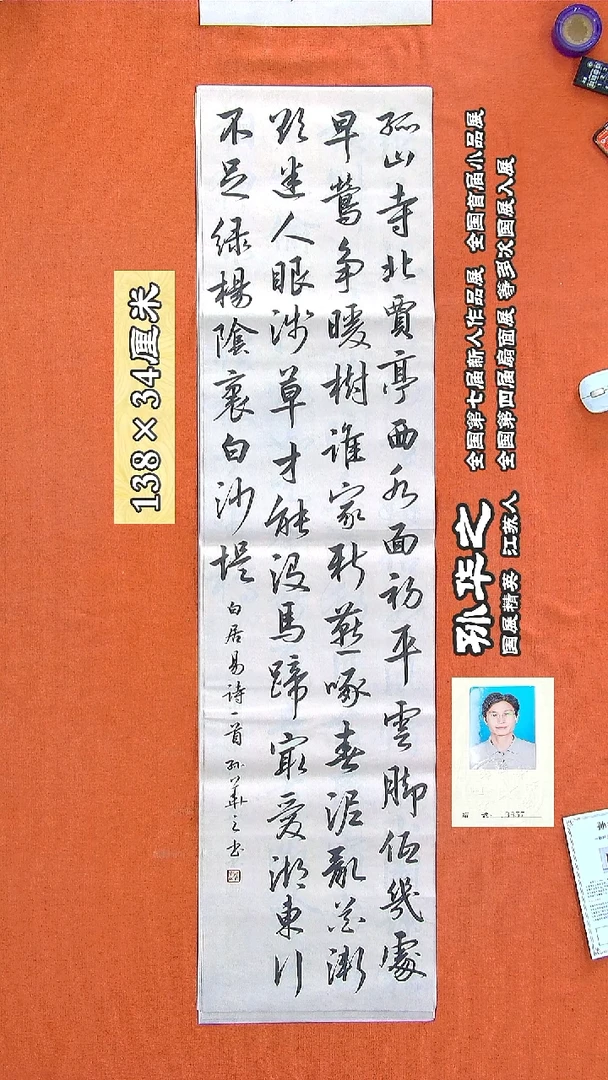 孤山寺北賈亭西水面初平雲脚低幾處
早鶯争暖樹誰家新燕啄春泥亂花漸
欲迷人眼浅草才能没馬蹄最爱湖東行
不足緑楊隂裏白沙堤
白居易诗一首孙華之书
138×34厘米
全国第七届新人作品展 全国首届小品展
全国第四届扇面展 等多次国展入展
孙华之
国展精英 江苏人